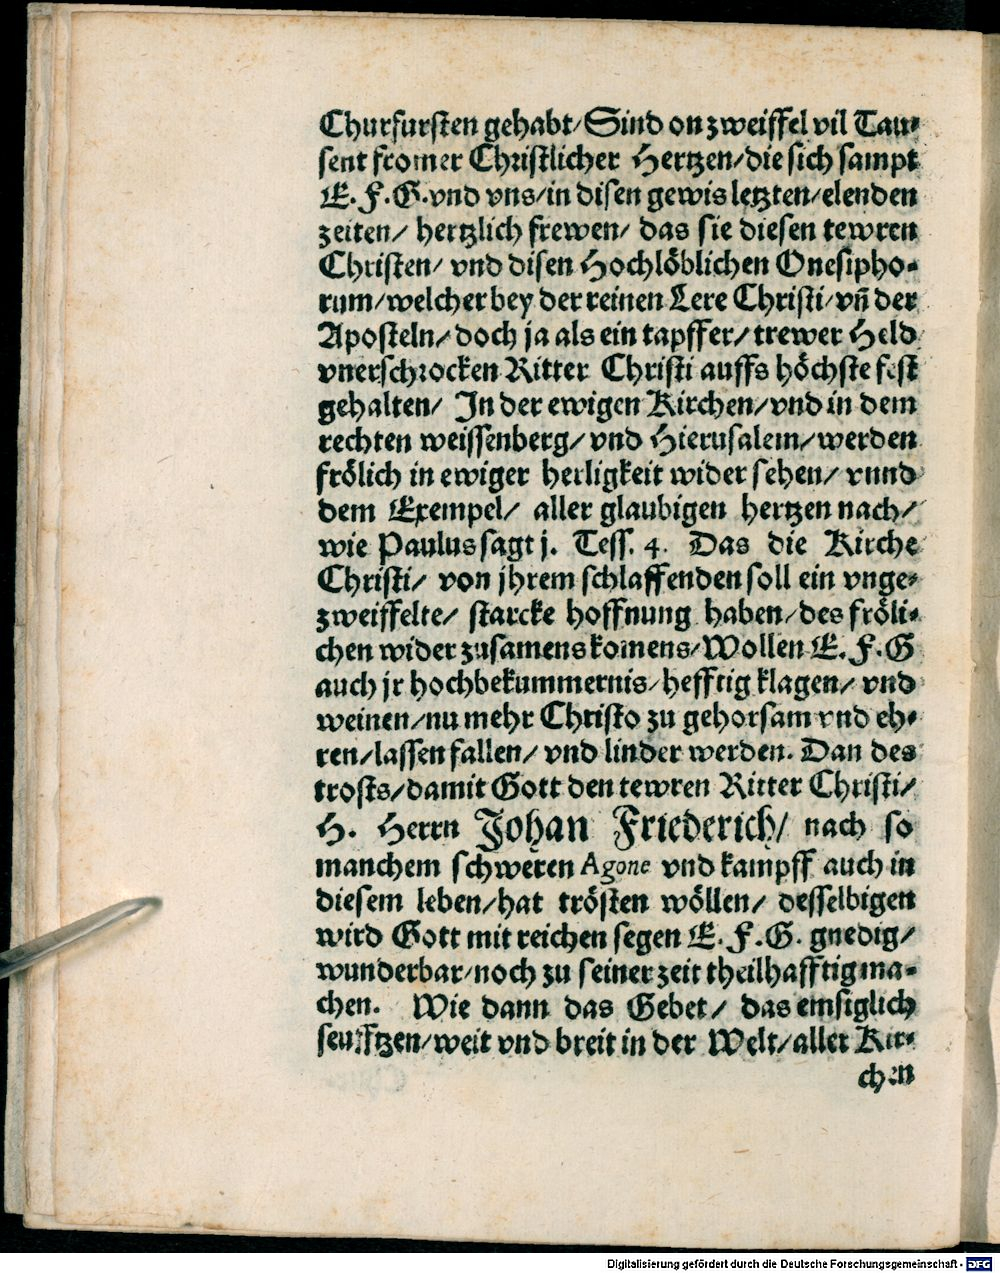 Churfursten gehabt/ Sind on zweiffel vil Tau-
sent fromer Christlicher Hertzen/ die sich sampt
E. F. G. vnd vns/ in disen gewis letzten/ elenden
zeiten/ hertzlich frewen/ das sie diesen tewren
Christen/ vnd disen Hochlöblichen Onesipho-
rum/ welcher bey der reinen Lere Christi/ vñ der
Aposteln/ doch ja als ein tapffer/ trewer Held
vnerschrocken Ritter Christi auffs höchste fest
gehalten/ In der ewigen Kirchen/ vnd in dem
rechten weissenberg/ vnd Hierusalem/ werden
frölich in ewiger herligkeit wider sehen/ vnnd
dem Exempel/ aller glaubigen hertzen nach/
wie Paulus sagt j. Tess. 4. Das die Kirche
Christi/ von jhrem schlaffenden soll ein vnge-
zweiffelte/ starcke hoffnung haben/ des fröli-
chen wider zusamens komens/ Wollen E. F. G
auch jr hochbekummernis/ hefftig klagen/ vnd
weinen/ nu mehr Christo zu gehorsam vnd eh-
ren/ lassen fallen/ vnd linder werden. Dan des
trosts/ damit Gott den tewren Ritter Christi/
H. Herrn Johan Friederich/ nach so
manchem schweren Agone vnd kampff auch in
diesem leben/ hat trösten wöllen/ desselbigen
wird Gott mit reichen segen E. F. G. gnedig/
wunderbar/ noch zu seiner zeit theilhafftig ma-
chen. Wie dann das Gebet/ das emsiglich
seufftzen/ weit vnd breit in der Welt/ aller Kir-
chen
Digitalisierung gefördert durch die Deutsche Forschungsgemeinschaft - DFG